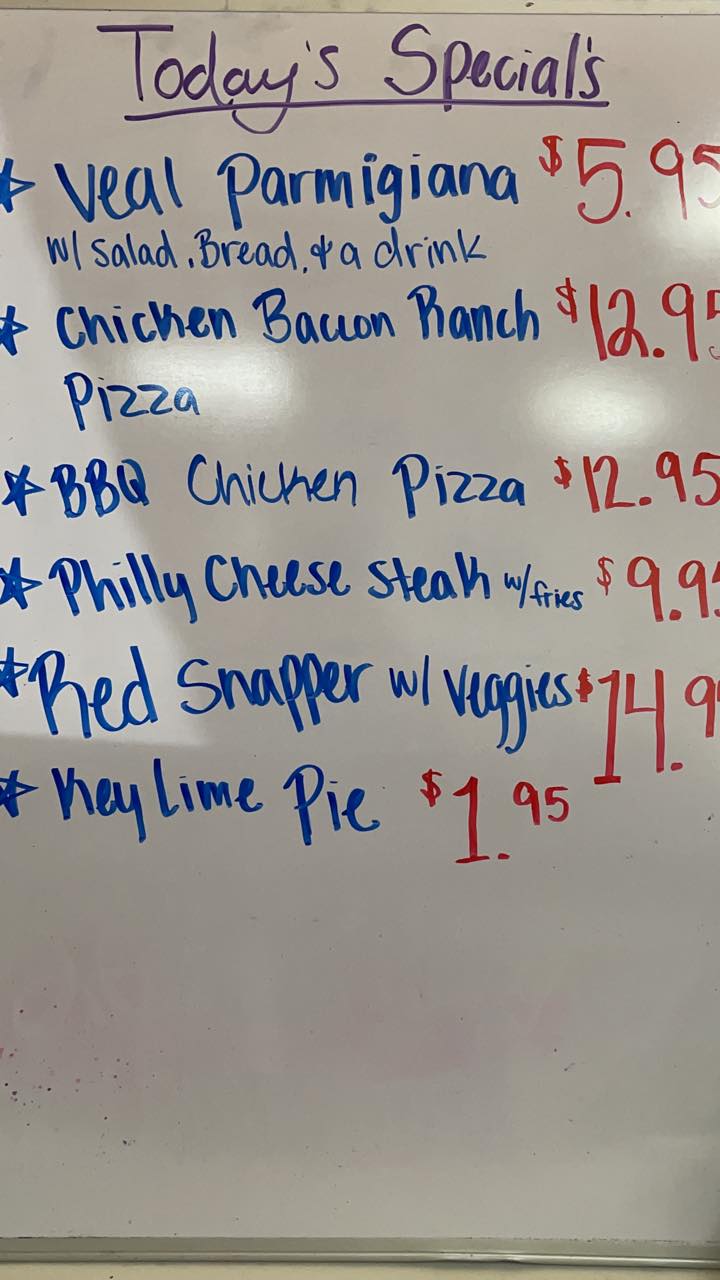 Today's Special's
☆ Veal Parmigiana $5.95
w/ Salad, Bread, & a drink
☆ Chicken Bacon Ranch $12.95
Pizza
☆ BBQ Chicken Pizza $12.95
☆ Philly Cheese Steak w/fries $9.95
☆ Red Snapper w/ Veggies $14.9
☆ Key Lime Pie $1.95